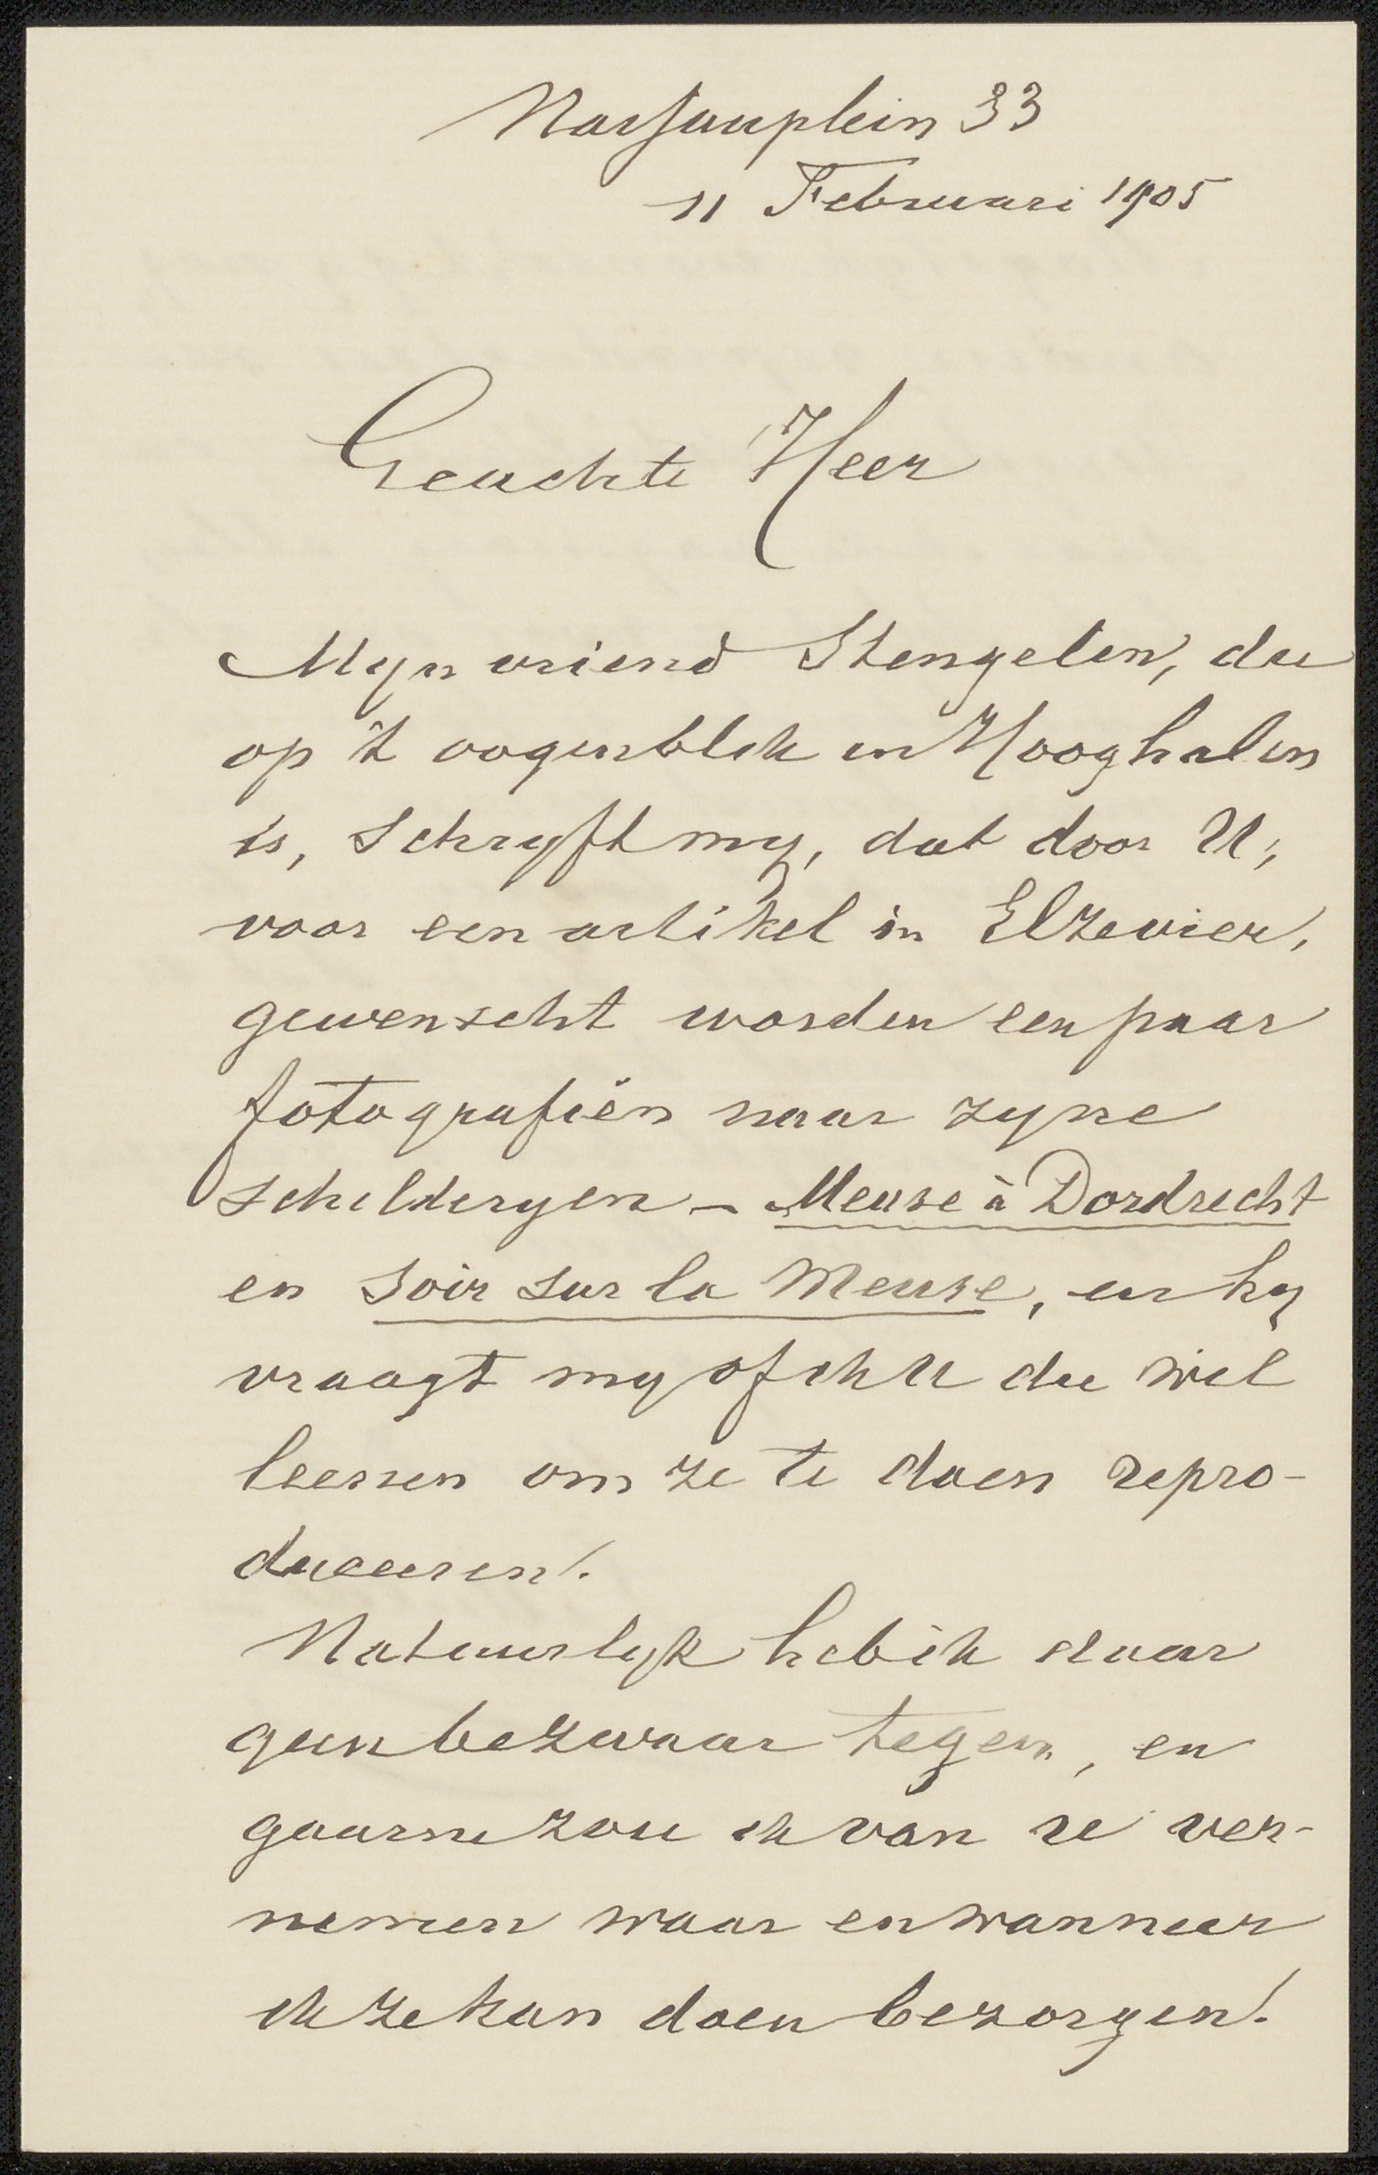 Nassauplein 33
11 Februari 1905
Geachte Heer
Myn vriend Stengelen, die
op 't oogenblik in Hooghalen
is, schryft my, dat door U,
voor een artikel in Elzevier,
gewenscht worden een paar
fotografiën naar zyne
schilderyen - Meuse à Dordrecht
en Soir sur la Meuse, en hy
vraagt my of ik U die wil
leenen om ze te doen repro-
duceeren.
Natuurlyk heb ik daar
geen bezwaar tegen, en
gaarne zou ik van U ver-
nemen waar en wanneer
ik ze kan doen bezorgen.